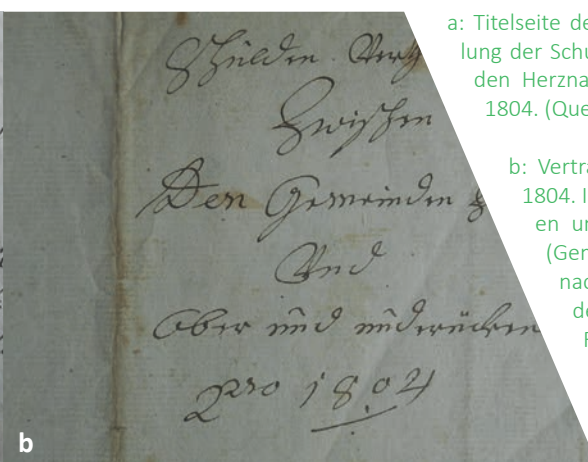 Schulden Verth
Zwischen
Den Gemeinden
Und
Ober und underücken
Pro 1804
b
a: Titelseite de
lung der Schu
den Herzna
1804. (Que
b: Vertra
1804. I
en un
nac
de